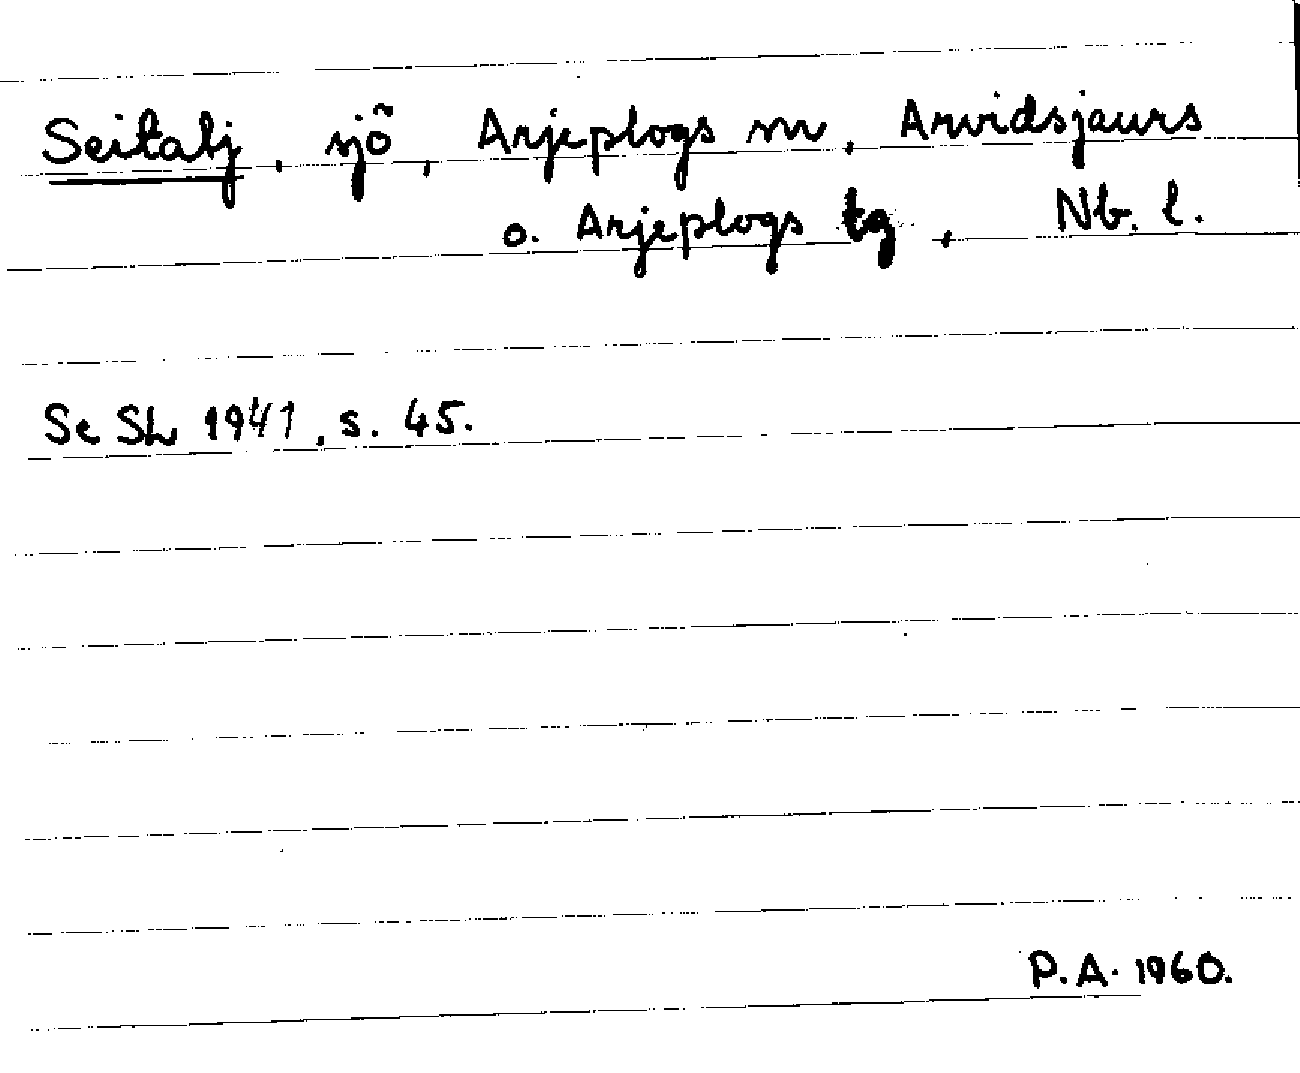 Seitalj, sjö, Arjeplogs sn, Arvidsjaurs
o. Arjeplogs tg, Nb. l.
Se SL 1941, s. 45.
P.A. 1960.